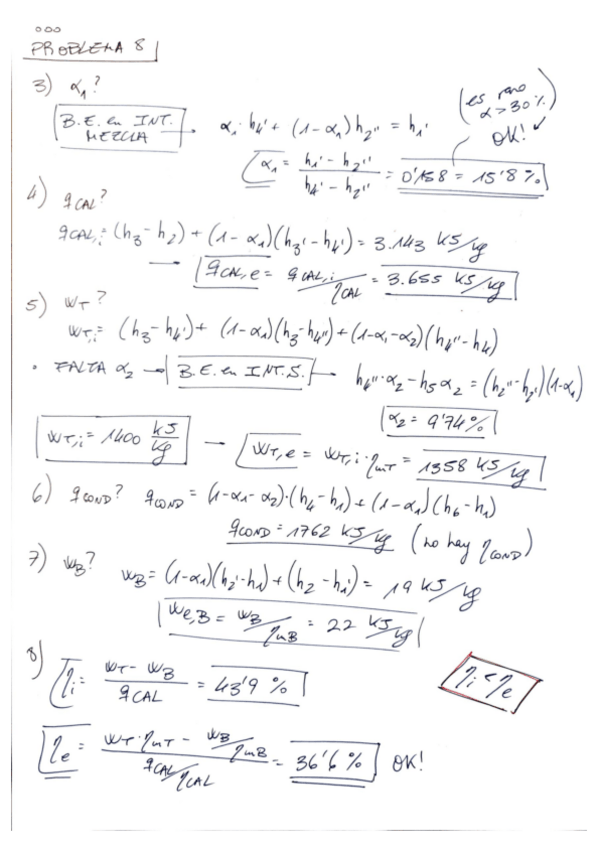 PROBLEMA 8
3) α₁?
B.E. en INT. MEZCLA → α₁·h₄' + (1-α₁)h₂'' = h₁'
(es raro α>30%) OK! ✓
α₁ = (h₁' - h₂'')/(h₄' - h₂'') = 0'158 = 15'8 %
4) q CAL?
q CAL,i = (h₃-h₂) + (1-α₁)(h₃'-h₄') = 3.143 kJ/kg
→ q CAL,e = q CAL,i/η CAL = 3.655 kJ/kg
5) w T?
w T,i = (h₃-h₄') + (1-α₁)(h₃'-h₄'') + (1-α₁-α₂)(h₄''-h₄)
· FALTA α₂ → B.E. en INT.S. → h₄''·α₂ - h₅α₂ = (h₂''-h₂')(1-α₁)
α₂ = 9'74%
w T,i = 1400 kJ/kg → w T,e = w T,i·η mT = 1358 kJ/kg
6) q COND? q COND = (1-α₁-α₂)·(h₄-h₁) + (1-α₁)(h₆-h₁)
q COND = 1762 kJ/kg (no hay η COND)
7) w B? w B = (1-α₁)(h₂'-h₁) + (h₂-h₁') = 19 kJ/kg
w e,B = w B/η mB = 22 kJ/kg
8) η i = (w T - w B)/q CAL = 43'9 %
η i < η e
η e = (w T·η mT - w B/η mB)/(q CAL/η CAL) = 36'6 % OK!